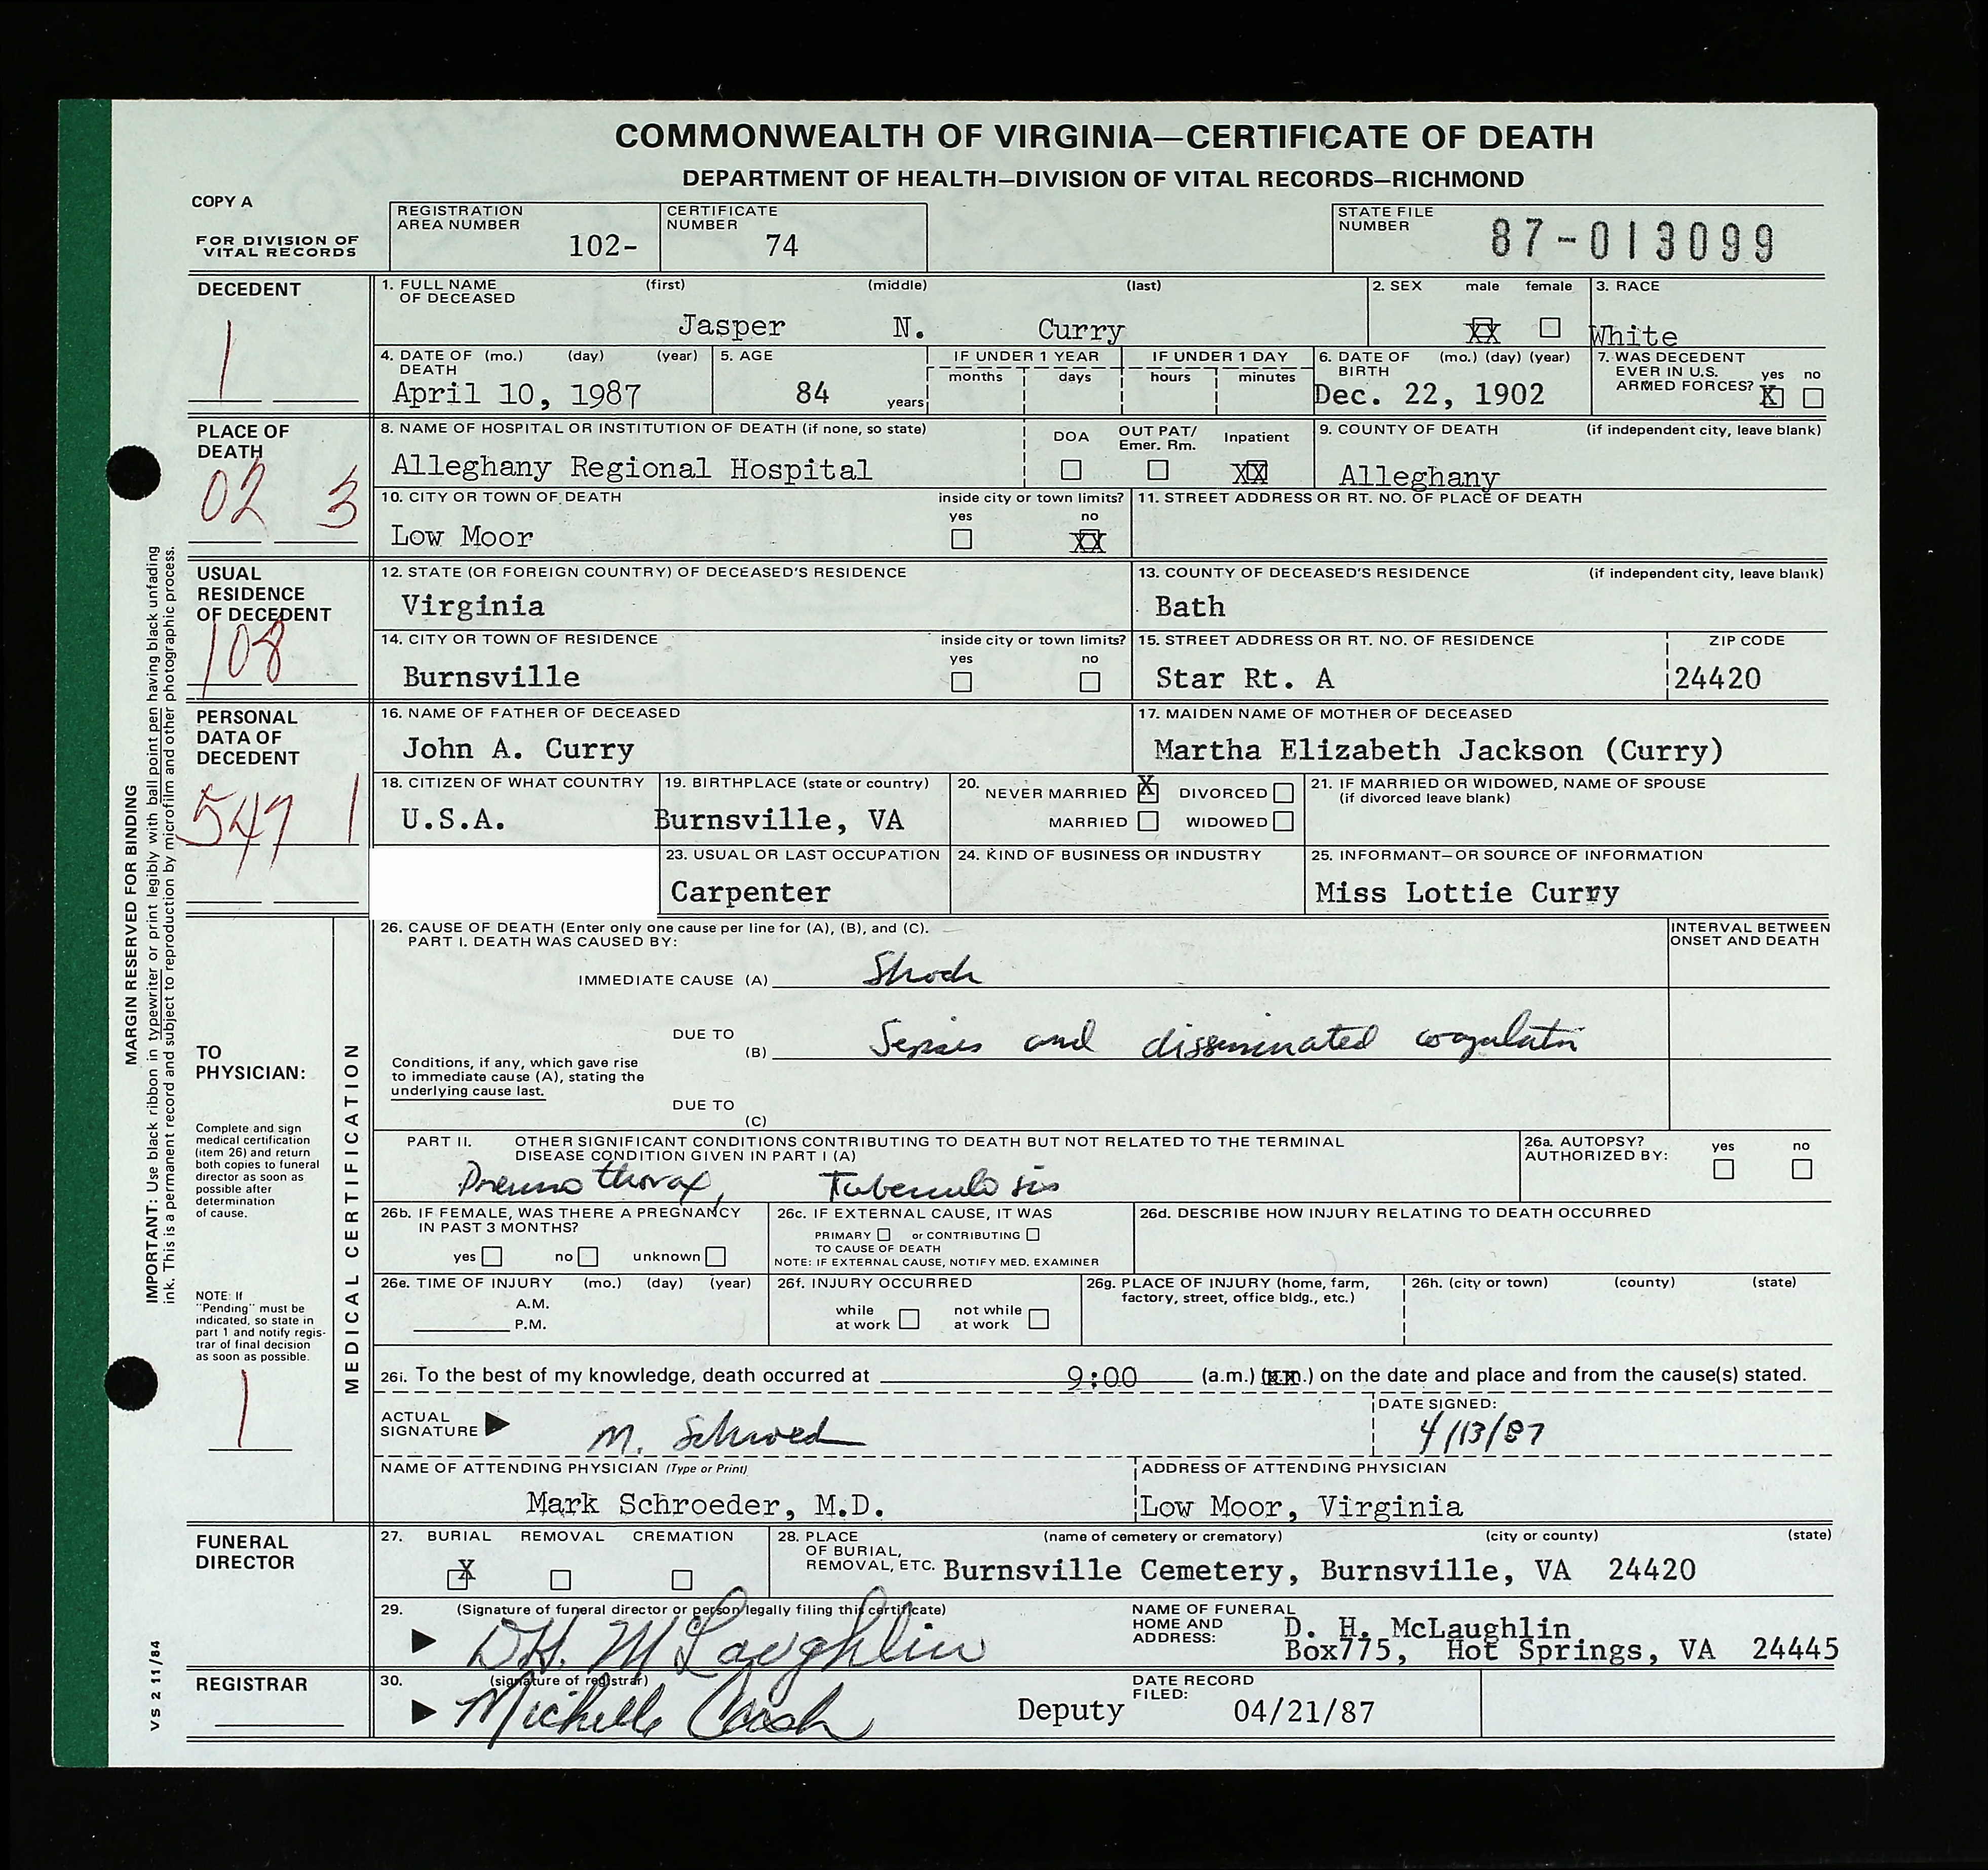 COMMONWEALTH OF VIRGINIA—CERTIFICATE OF DEATH
DEPARTMENT OF HEALTH—DIVISION OF VITAL RECORDS—RICHMOND
COPY A
FOR DIVISION OF
VITAL RECORDS
REGISTRATION
AREA NUMBER
102-
CERTIFICATE
NUMBER
74
STATE FILE
NUMBER
87-013099
DECEDENT
1
1. FULL NAME OF DECEASED (first) (middle) (last)
Jasper N. Curry
2. SEX male female
XX
3. RACE
White
4. DATE OF DEATH (mo.) (day) (year)
April 10, 1987
5. AGE
84 years
IF UNDER 1 YEAR
months days
IF UNDER 1 DAY
hours minutes
6. DATE OF BIRTH (mo.) (day) (year)
Dec. 22, 1902
7. WAS DECEDENT
EVER IN U.S.
ARMED FORCES? yes no
X
PLACE OF
DEATH
02 3
8. NAME OF HOSPITAL OR INSTITUTION OF DEATH (if none, so state)
Alleghany Regional Hospital
DOA OUT PAT/ Emer. Rm. Inpatient
XX
9. COUNTY OF DEATH (if independent city, leave blank)
Alleghany
10. CITY OR TOWN OF DEATH
Low Moor
inside city or town limits?
yes no
XX
11. STREET ADDRESS OR RT. NO. OF PLACE OF DEATH
USUAL
RESIDENCE
OF DECEDENT
108
12. STATE (OR FOREIGN COUNTRY) OF DECEASED'S RESIDENCE
Virginia
13. COUNTY OF DECEASED'S RESIDENCE (if independent city, leave blank)
Bath
14. CITY OR TOWN OF RESIDENCE
Burnsville
inside city or town limits?
yes no
15. STREET ADDRESS OR RT. NO. OF RESIDENCE
Star Rt. A
ZIP CODE
24420
PERSONAL
DATA OF
DECEDENT
547 1
16. NAME OF FATHER OF DECEASED
John A. Curry
17. MAIDEN NAME OF MOTHER OF DECEASED
Martha Elizabeth Jackson (Curry)
18. CITIZEN OF WHAT COUNTRY
U.S.A.
19. BIRTHPLACE (state or country)
Burnsville, VA
20. NEVER MARRIED X DIVORCED
MARRIED WIDOWED
21. IF MARRIED OR WIDOWED, NAME OF SPOUSE
(if divorced leave blank)
23. USUAL OR LAST OCCUPATION
Carpenter
24. KIND OF BUSINESS OR INDUSTRY
25. INFORMANT—OR SOURCE OF INFORMATION
Miss Lottie Curry
MARGIN RESERVED FOR BINDING
IMPORTANT: Use black ribbon in typewriter or print legibly with ball point pen having black unfading
ink. This is a permanent record and subject to reproduction by microfilm and other photographic process.
MEDICAL CERTIFICATION
TO
PHYSICIAN:
Complete and sign
medical certification
(item 26) and return
both copies to funeral
director as soon as
possible after
determination
of cause.
NOTE: If
"Pending" must be
indicated, so state in
part 1 and notify regis-
trar of final decision
as soon as possible.
1
26. CAUSE OF DEATH (Enter only one cause per line for (A), (B), and (C).
PART I. DEATH WAS CAUSED BY:
INTERVAL BETWEEN
ONSET AND DEATH
IMMEDIATE CAUSE (A) Shock
DUE TO
(B) Sepsis and disseminated coagulatn
Conditions, if any, which gave rise
to immediate cause (A), stating the
underlying cause last.
DUE TO
(C)
PART II. OTHER SIGNIFICANT CONDITIONS CONTRIBUTING TO DEATH BUT NOT RELATED TO THE TERMINAL
DISEASE CONDITION GIVEN IN PART I (A)
Pneumothorax, Tuberculosis
26a. AUTOPSY?
AUTHORIZED BY: yes no
26b. IF FEMALE, WAS THERE A PREGNANCY
IN PAST 3 MONTHS?
yes no unknown
26c. IF EXTERNAL CAUSE, IT WAS
PRIMARY or CONTRIBUTING
TO CAUSE OF DEATH
NOTE: IF EXTERNAL CAUSE, NOTIFY MED. EXAMINER
26d. DESCRIBE HOW INJURY RELATING TO DEATH OCCURRED
26e. TIME OF INJURY (mo.) (day) (year)
A.M.
P.M.
26f. INJURY OCCURRED
while at work not while at work
26g. PLACE OF INJURY (home, farm,
factory, street, office bldg., etc.)
26h. (city or town) (county) (state)
26i. To the best of my knowledge, death occurred at 9:00 (a.m.) (p.m.) on the date and place and from the cause(s) stated.
ACTUAL
SIGNATURE M. Schroed
DATE SIGNED:
4/13/87
NAME OF ATTENDING PHYSICIAN (Type or Print)
Mark Schroeder, M.D.
ADDRESS OF ATTENDING PHYSICIAN
Low Moor, Virginia
FUNERAL
DIRECTOR
27. BURIAL REMOVAL CREMATION
X
28. PLACE
OF BURIAL,
REMOVAL, ETC. (name of cemetery or crematory) (city or county) (state)
Burnsville Cemetery, Burnsville, VA 24420
29. (Signature of funeral director or person legally filing this certificate)
D.H. McLaughlin
NAME OF FUNERAL
HOME AND
ADDRESS:
D. H. McLaughlin
Box775, Hot Springs, VA 24445
REGISTRAR
30. (signature of registrar)
Michelle Cash
Deputy
DATE RECORD
FILED:
04/21/87
VS 2 11/84